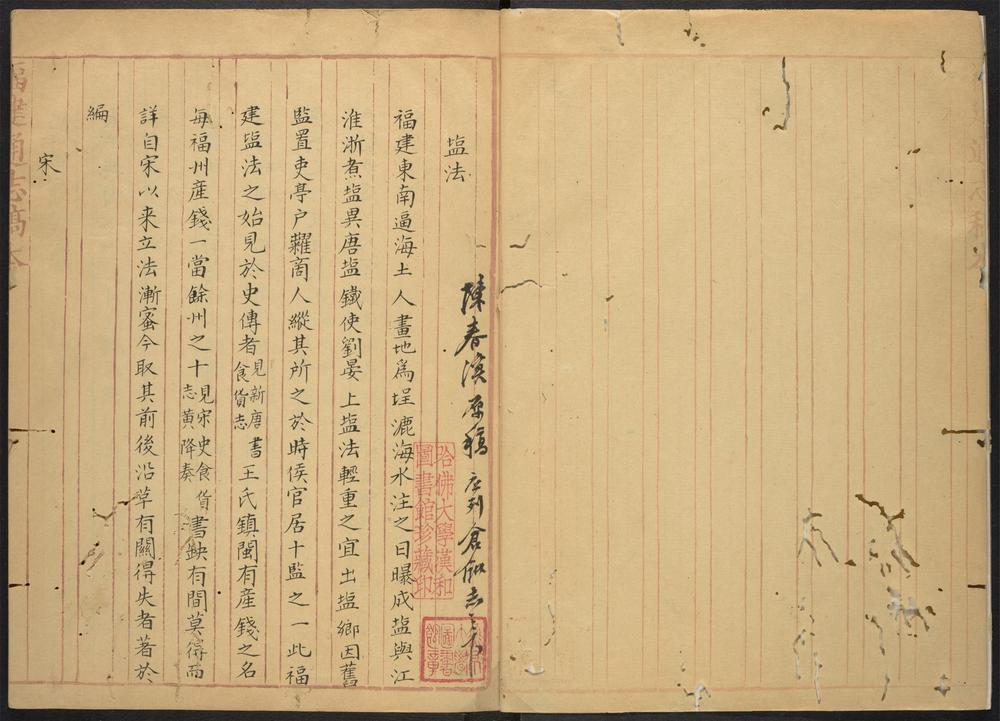 塩法
陳春溟原稿 應列倉儲志之前
福建東南逼海土人畫地為埕漉海水注之日曝成塩與江
淮浙煮塩異唐塩鐵使劉晏上塩法輕重之宜出塩鄉因舊
監置吏亭户糶商人縱其所之於時侯官居十監之一此福
建塩法之始見於史傳者見新唐書食貨志王氏鎮閩有產錢之名
每福州產錢一當餘州之十見宋史食貨志黄降奏書缺有間莫得而
詳自宋以来立法漸蜜今取其前後沿革有關得失者著於
編
宋
福建通志高本
哈佛大學漢和圖書館珍藏印